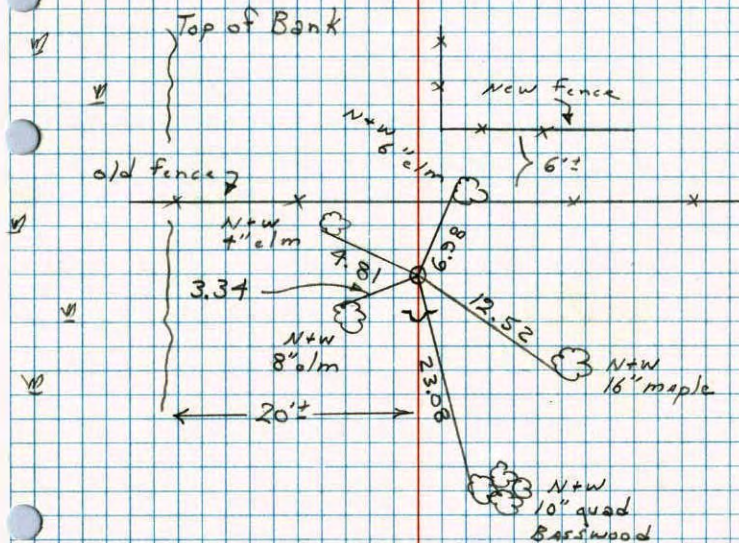 Top of Bank
New fence
N+W
6" elm
6'±
old fence
N+W
4" elm
4.81
3.34
12.52
N+W
8" elm
N+W
16" maple
23.08
20'±
N+W
10" quad
Basswood